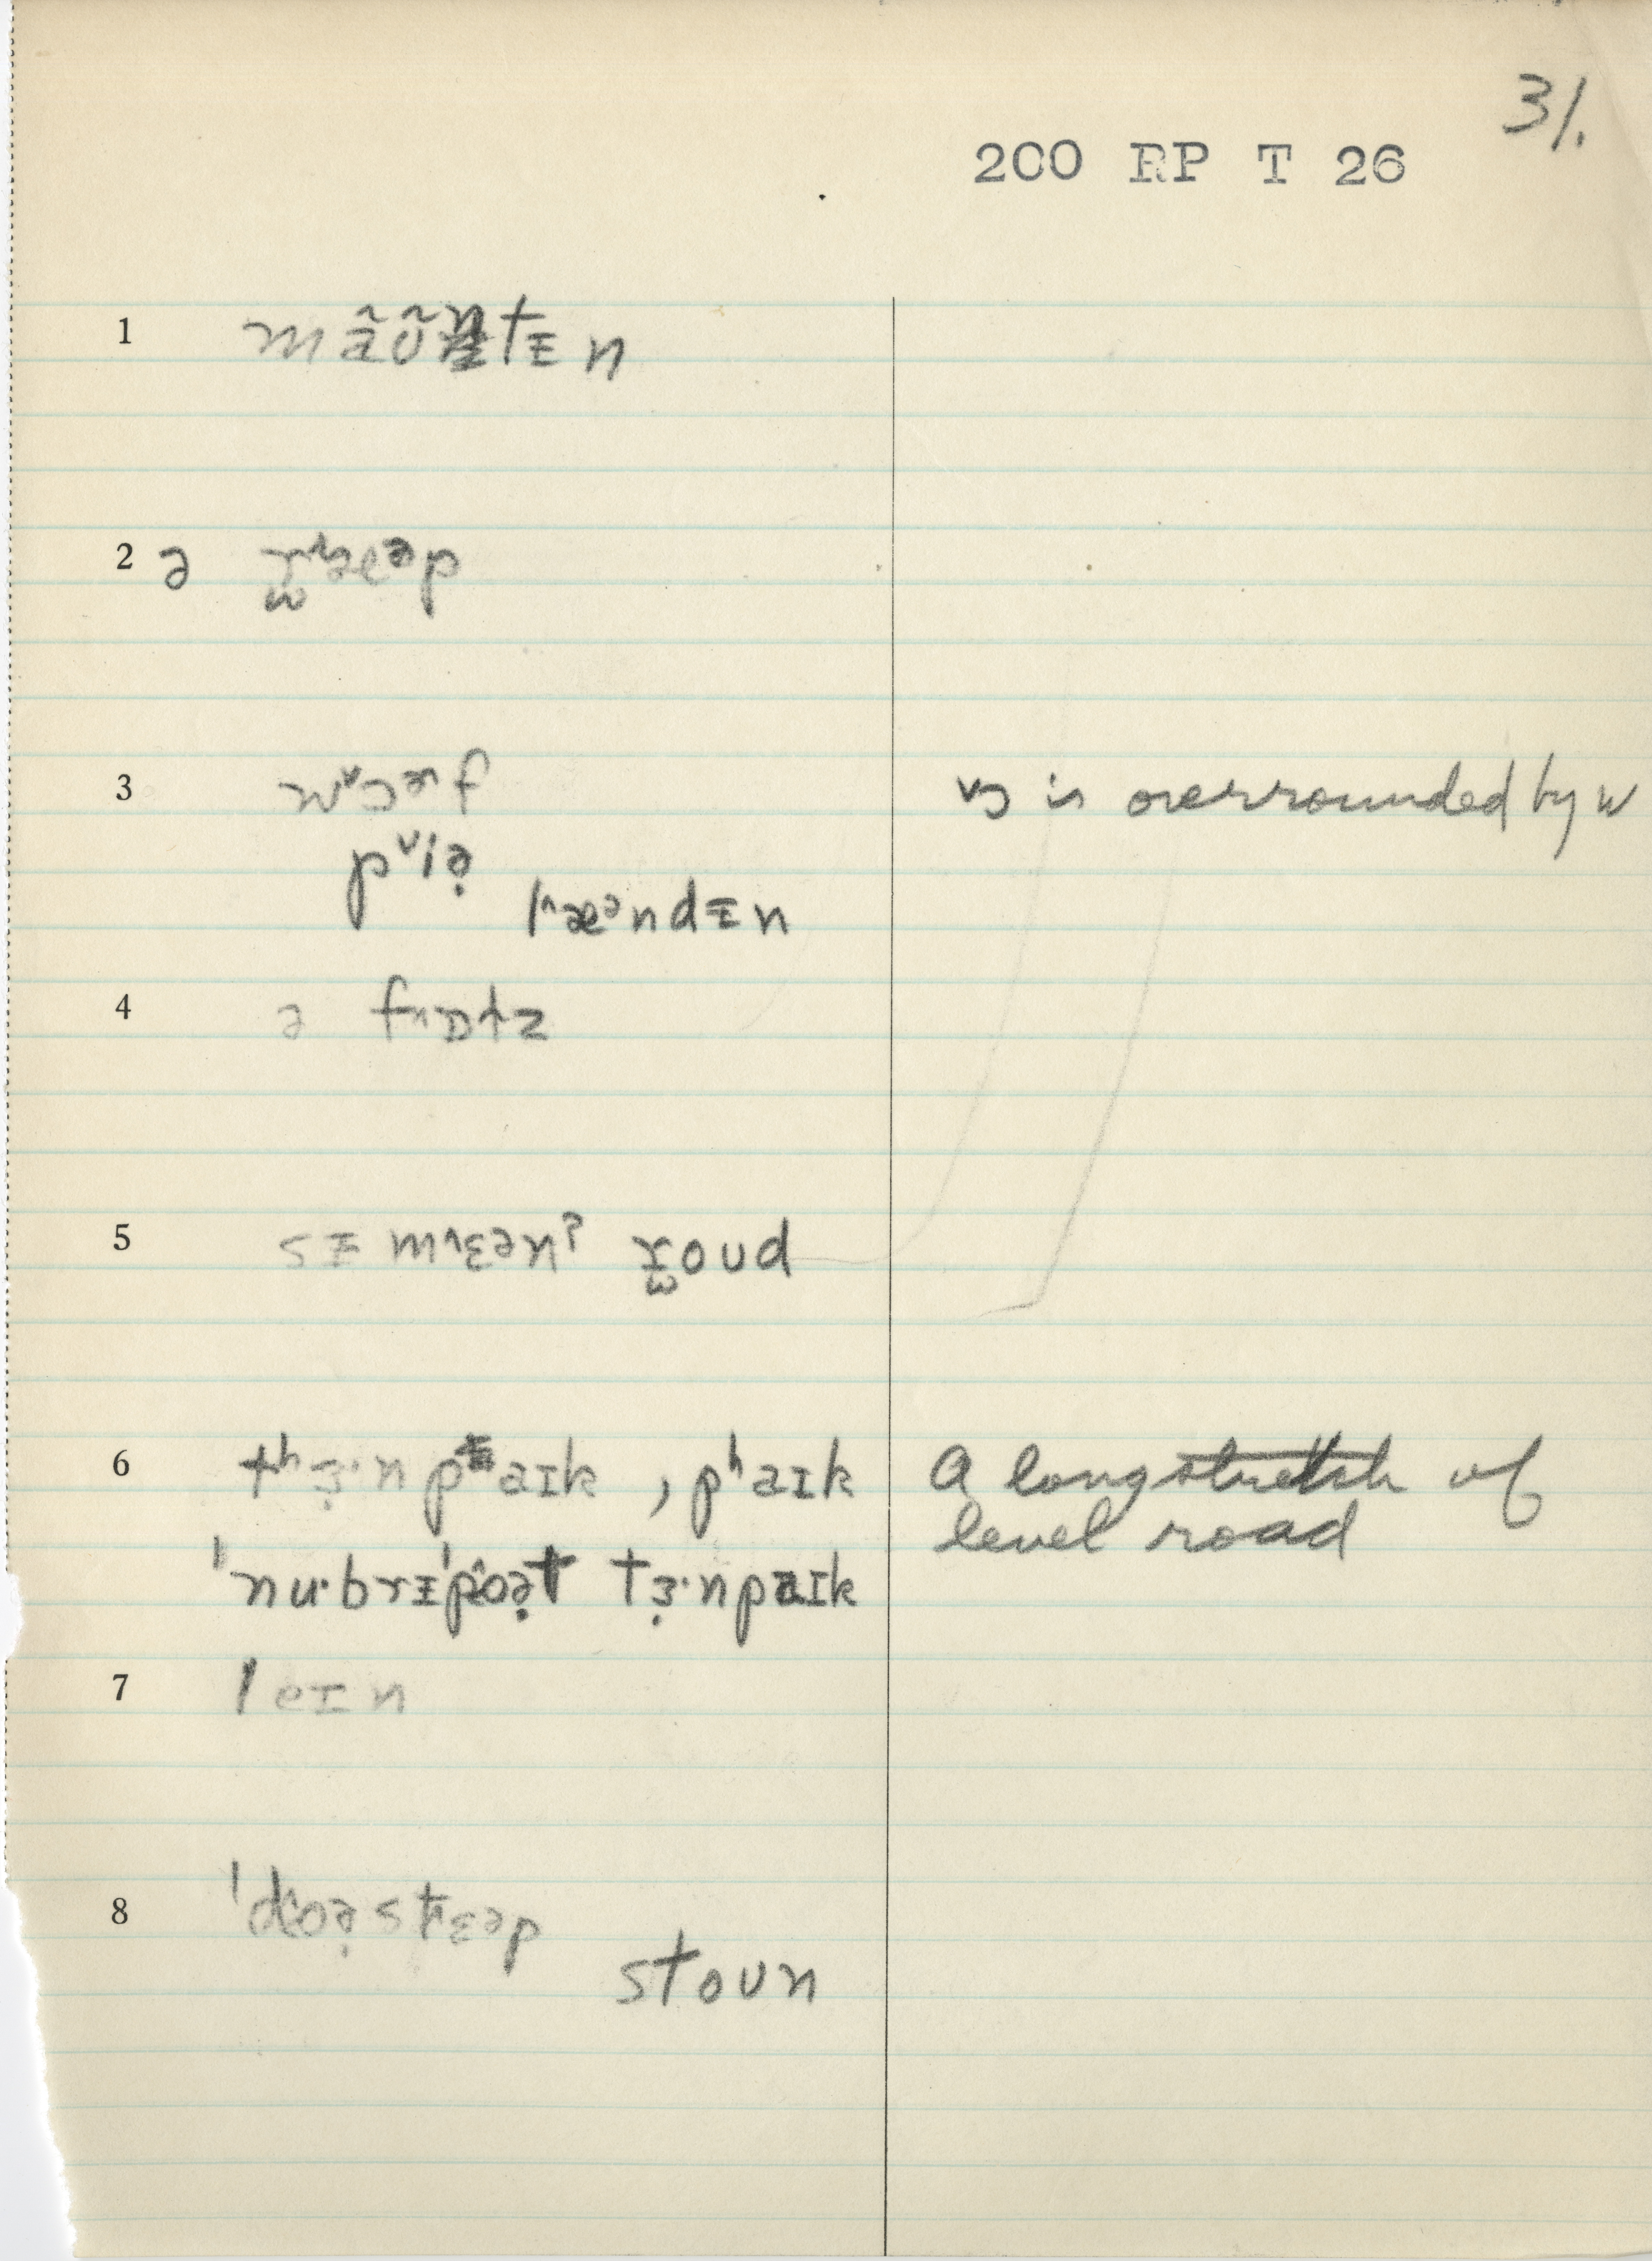 31.
200 RP T 26
1 mãʊ̃ntᵻn
2 ə
3 wɔəf ɔ is overrounded by w
piə̣
læəndᵻn
4 ə
5 sᵻmɛənʔ roud
6 tʰɜ̣·npaɪk , pʰaɪk A long stretch of
level road
ˈnu·brᵻˈpoə̣t tɜ̣·npaɪk
7 leɪn
8 ˈdoə̣stɛəp
stoun